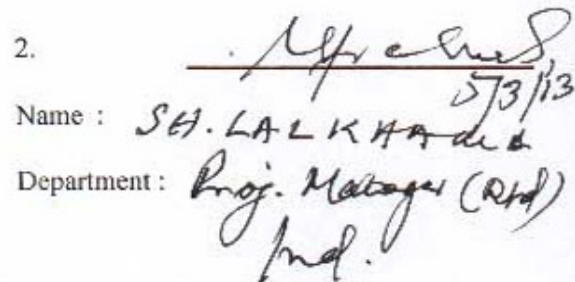 2.
5/3/13
Name : SH. LAL KHAN
Department : Proj. Manager (Rtd)
Ind.